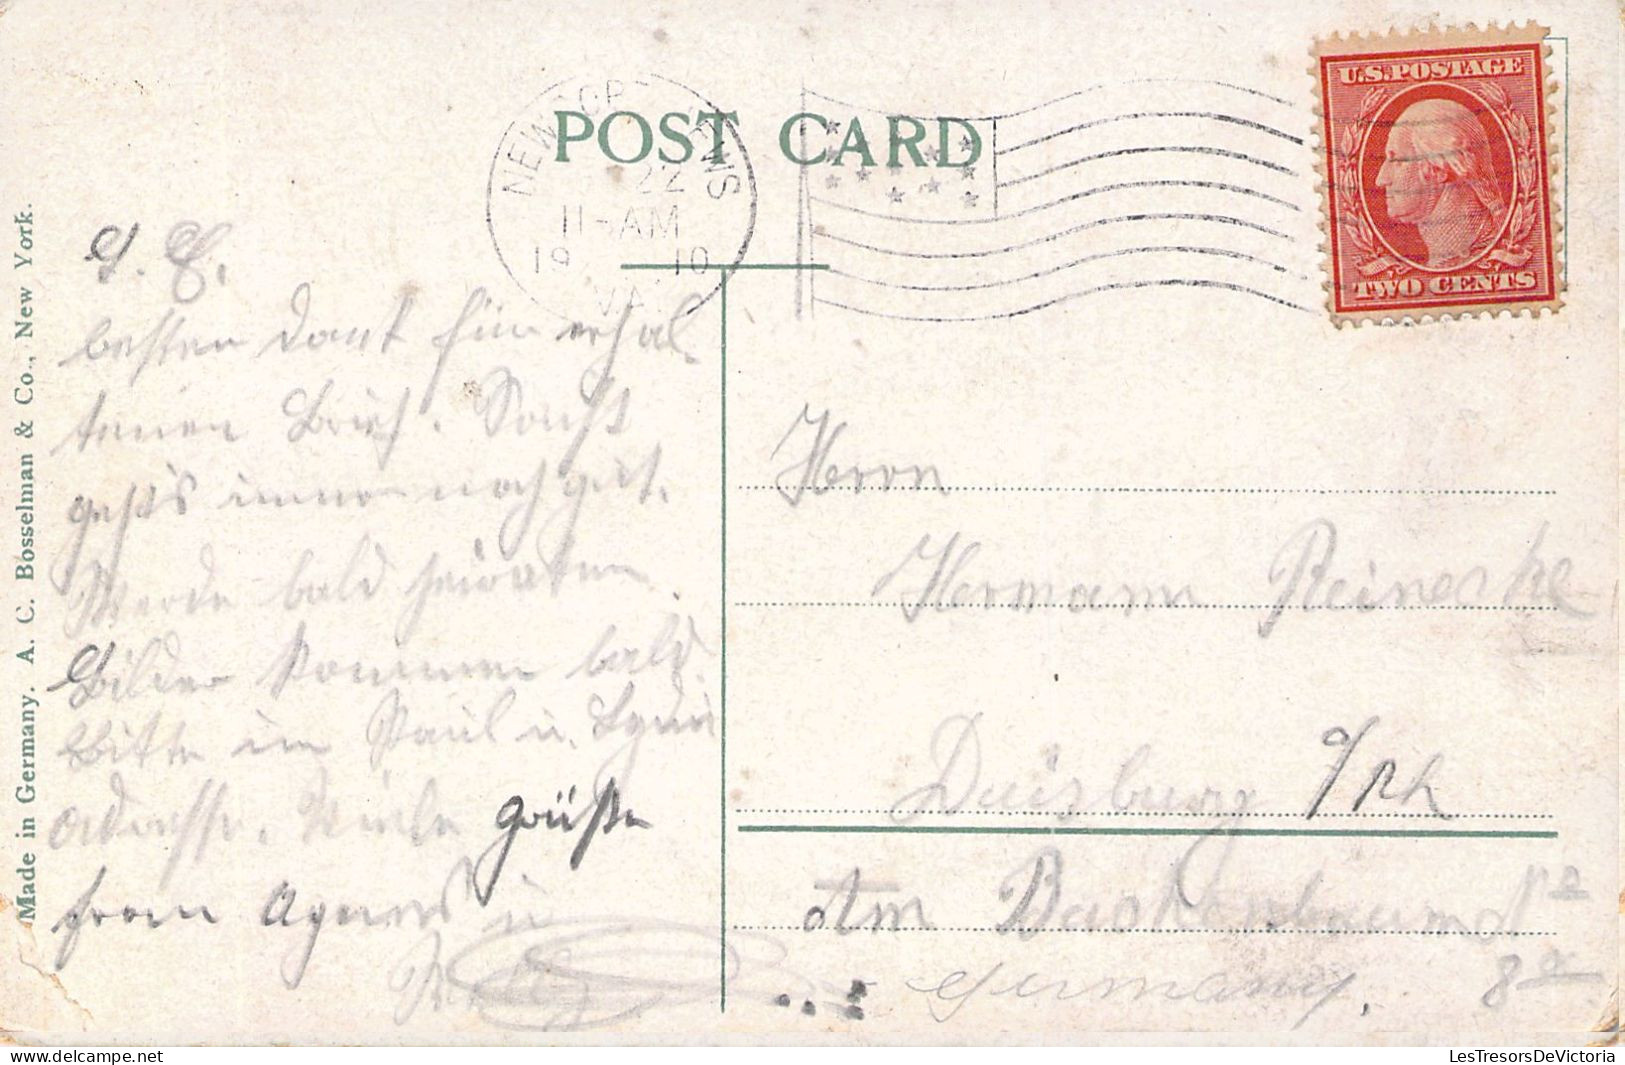 POST CARD
NEWPORT NEWS
22
11-AM
1910
VA.
U.S. POSTAGE
TWO CENTS
Made in Germany. A. C. Bosselman & Co., New York.
besten Dank für erhal-
tenen Brief. Sonst
geht's immer noch gut.
Werde bald heiraten
Bilder kommen bald.
Bitte um Paul u.
Adresse. Viele Grüße
from Agnes u.
Herrn
Hermann Reinecke
Duisburg a/Rh
Am Buchenbaum No
8a
Germany.
LesTresorsDeVictoria